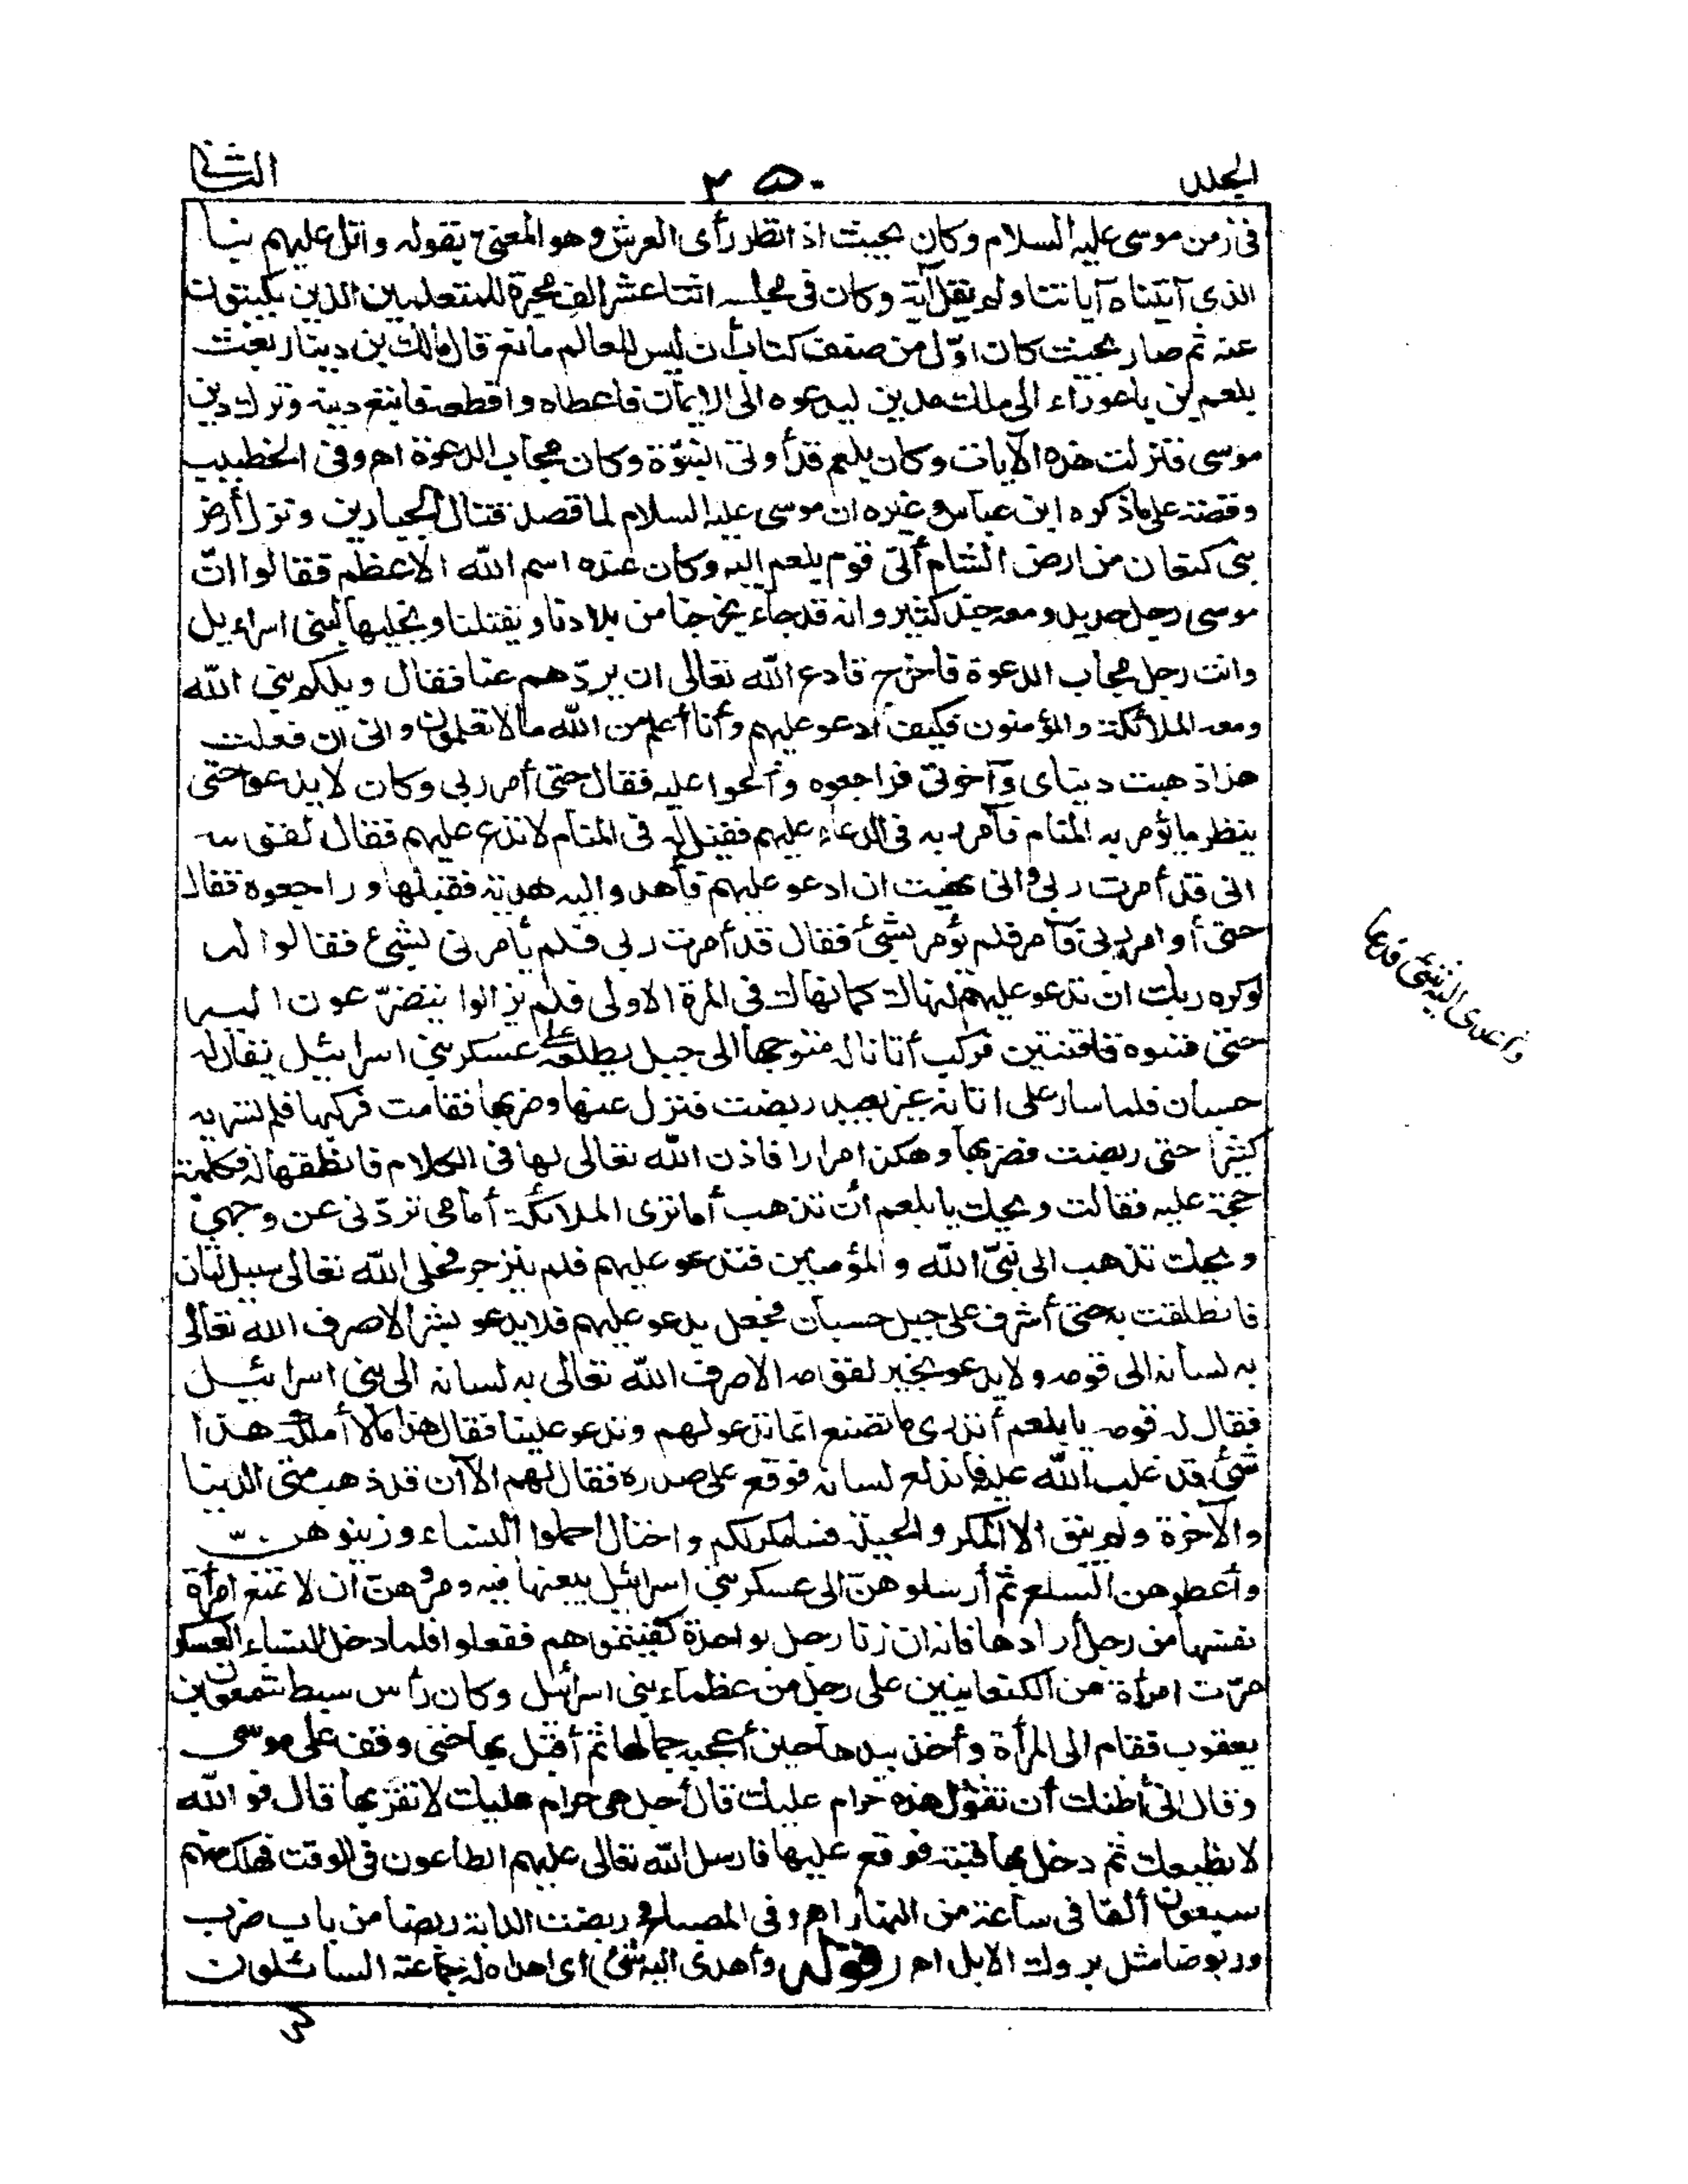 الجلد
٢٥٠
الثاني
فى زمن موسى عليه السلام وكان بحيث اذا نظر رأى العرش وهو المعنى بقوله واتل عليهم نبأ
الذى آتيناه آياتنا ولم يقل آية وكان فى مجلسه اثنتا عشر الف محبرة للمتعلمين الذين يكتبون
عنه ثم صار بحيث كان اوّل من صنف كتابا أن ليس للعالم صانع قال مالك بن دينار بعث
بلعم بن باعوراء الى ملك مدين ليدعوه الى الايمان فاعطاه واقطعه فاتبع دينه وترك دين
موسى فنزلت هذه الآيات وكان بلعم قد أوتى النبوّة وكان مجاب الدعوة اهـ وفى الخطيب
وقصته على ما ذكره ابن عباس وغيره ان موسى عليه السلام لما قصد قتال الجبارين ونزل أرض
بنى كنعان من ارض الشام أتى قوم بلعم اليه وكان عنده اسم الله الاعظم فقالوا انّ
موسى رجل حديد ومعه جند كثير وانه قد جاء يخرجنا من بلادنا ويقتلنا ويخليها لبنى اسراءيل
وانت رجل مجاب الدعوة فاخرج فادع الله تعالى ان يردّهم عنا فقال ويلكم نبي الله
ومعه الملائكة والمؤمنون فكيف أدعو عليهم وأنا أعلم من الله ما لا تعلمون وانى ان فعلت
هذا ذهبت دنياى وآخرتى فراجعوه وألحوا عليه فقال حتى أمر ربى وكان لا يدعو حتى
ينظر ما يؤمر به المنام فآمر به فى الدعاء عليهم فقيل له فى المنام لا تدع عليهم فقال لقومه
انى قد أمرت ربى وانى نهيت ان ادعو عليهم فأهدوا اليه هدية فقبلها وراجعوه فقال
حتى أوامر ربى فآمر فلم يؤمر بشئ فقال قد أمرت ربى فلم يأمرنى بشئ فقالوا له
لو كره ربك ان تدعو عليهم لنهاك كما نهاك فى المرة الاولى فلم يزالوا يتضرّعون اليه
حتى فتنوه فافتتن فركب أتانا له متوجها الى جبل يطلعه على عسكر بنى اسرائيل يقال له
حسبان فلما سار على اتانه غير بعيد ربضت فنزل عنها وضربها فقامت فركبها فلم تسر به
كثيرا حتى ربضت فضربها وهكذا مرارا فاذن الله تعالى لها فى الكلام فانطقها له فكلمته
حجة عليه فقالت ويحك يا بلعم أين تذهب أما ترى الملائكة أمامى تردّنى عن وجهى
ويحك تذهب الى نبىّ الله والمؤمنين فتدعو عليهم فلم ينزجر فخلى الله تعالى سبيل أتان
فانطلقت به حتى أشرف على جبل حسبان فجعل يدعو عليهم فلا يدعو بشر الا صرف الله تعالى
به لسانه الى قومه ولا يدعو بخير لقومه الا صرف الله تعالى به لسانه الى بنى اسرائيل
فقال له قومه يا بلعم أتدرى ما تصنع انما تدعو لهم وتدعو علينا فقال هذا ما لا أملك هذا
شئ قد غلب الله عليه فاندلع لسانه فوقع على صدره فقال لهم الآن قد ذهب منى الدنيا
والآخرة ولم يبق الا المكر والحيلة فسامكر لكم واحتال احملوا النساء وزينوهنّ
وأعطوهن السلع ثم أرسلوهنّ الى عسكر بنى اسرائيل يبعنها فيه ومروهنّ ان لا تمنع امرأة
نفسها من رجل أرادها فانه ان زنا رجل بواحدة كفيتموهم ففعلوا فلما دخل النساء العسكر
مرّت امرأة من الكنعانيين على رجل من عظماء بنى اسرائيل وكان رأس سبط شمعون بن
يعقوب فقام الى المرأة وأخذ بيدها حين أعجبه جمالها ثم أقبل بها حتى وقف على موسى
وقال انى أظنك أن تقول هذه حرام عليك قال أجل هى حرام عليك لا تقربها قال فو الله
لا نطيعك ثم دخل بها قبته فوقع عليها فارسل الله تعالى عليهم الطاعون فى الوقت فهلك منهم
سبعون ألفا فى ساعة من النهار اهـ وفى المصباح ربضت الدابة ربضا من باب ضرب
وربوضا مثل بروك الابل اهـ (قوله وأهدى اليه شئ) أى اهداه له جماعته السائلون
وأهدى اليه شئ فدعا